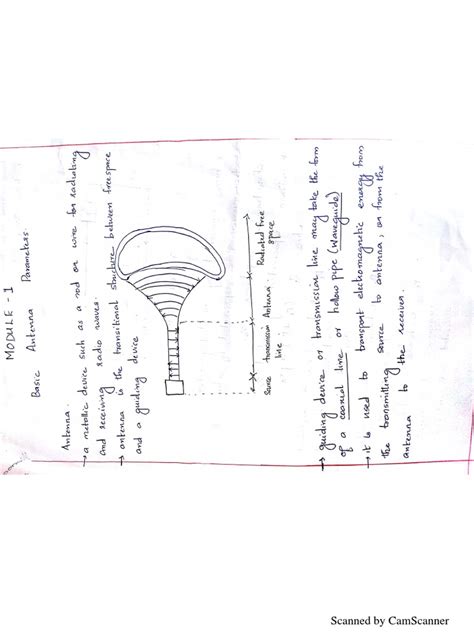 MODULE - 1
Basic Antenna Parameters
Antenna.
→ a metallic device such as a rod or wire for radiating
and receiving radio waves.
→ antenna is the transitional structure between freespace
and a guiding device
Source transmission Antenna. Radiated free
line space
→ guiding device or transmission line may take the form
of a coaxial line or hollow pipe (waveguide)
→ it is used to transport electromagnetic energy from
the transmitting source to antenna, or from the
antenna to the receiver.
Scanned by CamScanner